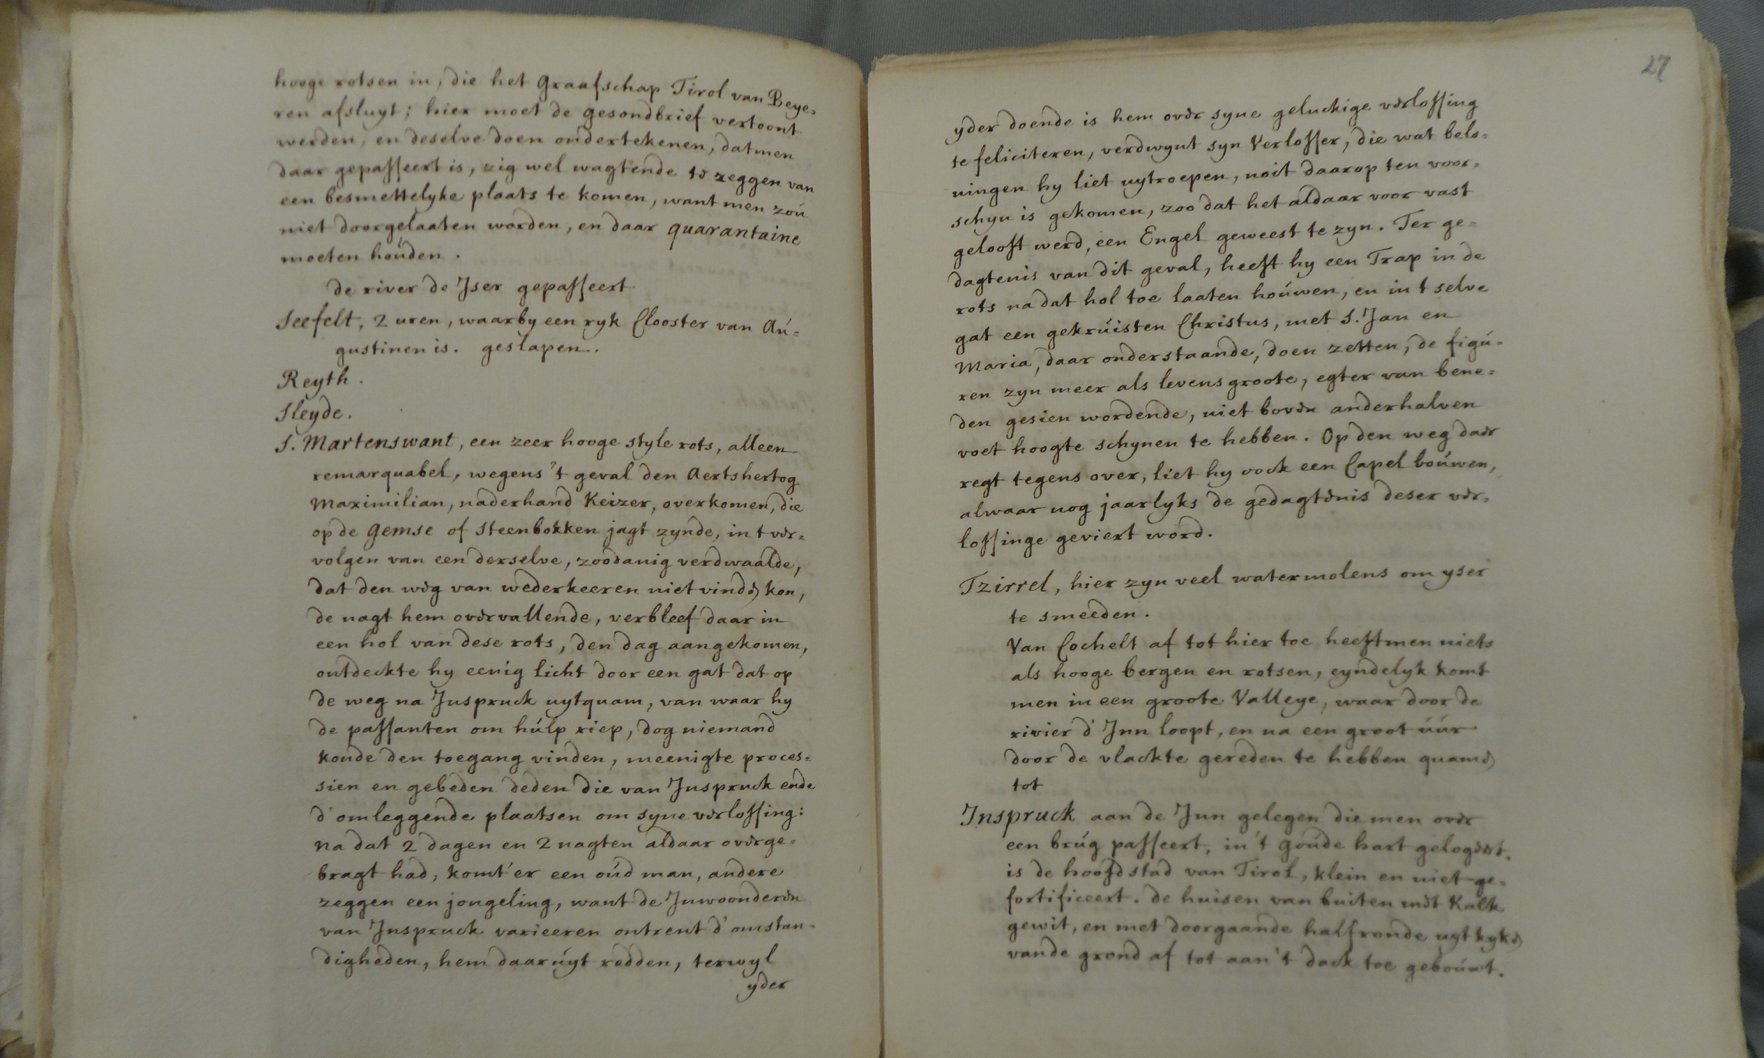 hooge rotsen in, die het Graafschap Tirol van Beye=
ren afsluyt; hier moet de gesondbrief vertoont
werden, en deselve doen ondertekenen, datmen
daar gepasseert is, zig wel wagtende te zeggen van
een besmettelyke plaats te komen, want men zoú
niet doorgelaaten worden, en daar quarantaine
moeten hoúden.
de river de Jser gepasseert
Seefelt, 2 uren, waarby een ryk Clooster van Aú=
gustinen is. geslapen.
Reyth.
Sleyde.
S. Martenswant, een zeer hooge style rots, alleen
remarquabel, wegens 't geval den Aertshertog
Maximilian, naderhand Keizer, overkomen, die
op de Gemse of Steenbokken jagt zynde, in t ver=
volgen van een derselve, zoodanig verdwaalde,
dat den weg van wederkeeren niet vinden kon,
de nagt hem overvallende, verbleef daar in
een hol van dese rots, den dag aangekomen,
ontdeckte hy eenig licht door een gat dat op
de weg na Jnspruck uytquam, van waar hy
de passanten om húlp riep, dog niemand
konde den toegang vinden, meenigte proces=
sien en gebeden deden die van Jnspruck ende
d'omleggende plaatsen om syne verlossing:
na dat 2 dagen en 2 nagten aldaar overge=
bragt had, komt'er een oúd man, andere
zeggen een jongeling, want de Jnwoonderen
van Jnspruck varieeren ontrent d'omstan=
digheden, hem daar úyt redden, terwyl
yder
27
yder doende is hem over syne geluckige verlossing
te feliciteren, verdwynt syn Verlosser, die wat belo=
ningen hy liet uytroepen, noit daarop ten voor=
schyn is gekomen, zoo dat het aldaar voor vast
gelooft werd, een Engel geweest te zyn. Ter ge=
dagtenis van dit geval, heeft hy een Trap in de
rots na dat hol toe laaten hoúwen, en in t selve
gat een gekrúisten Christus, met S. Jan en
Maria, daar onderstaande, doen zetten, de figú=
ren zyn meer als levensgroote, egter van bene=
den gesien wordende, niet boven anderhalven
voet hoogte schynen te hebben. Op den weg daar
regt tegens over, liet hy oock een Capel boúwen,
alwaar nog jaarlyks de gedagtenis deser ver=
lossinge geviert word.
Tzirrel, hier zyn veel watermolens om yser
te smeeden.
Van Cochelt af tot hier toe heeft men niets
als hooge bergen en rotsen, eyndelyk komt
men in een groote Valleye, waar door de
rivier d'Jnn loopt, en na een groot úúr
door de vlackte gereden te hebben quamen
tot
Jnspruck aan de Jnn gelegen die men over
een brúg passeert, in 't Goude hart gelogeert.
is de hoofdstad van Tirol, klein en niet ge=
fortificeert. de huisen van buiten met Kalk
gewit, en met doorgaande halfronde uytkyken
vande grond af tot aan 't dack toe geboúwt.